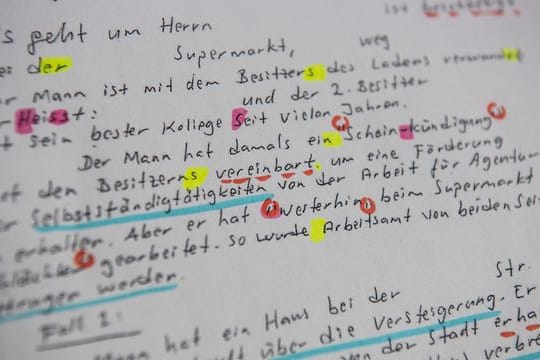 ist beschädigt
s geht um Herrn
Supermarkt, weg
der
Mann ist mit dem Besitzers des Ladens verwandt
Heisst: und der 2. Besitzer
t sein bester Kollege Seit vielen Jahren.
Der Mann hat damals ein Schein-kündigung
den Besitzerns vereinbart, um eine Förderung
Selbstständigtätigkeiten von der Arbeit für Agentur
erhalten. Aber er hat westerhin beim Supermarkt
gearbeitet. So wurde Arbeitsamt von beiden Sei-
werden.
Fall 2: Str.
Mann hat ein Haus bei der
über die Versteigerung. Er
von der Stadt erha